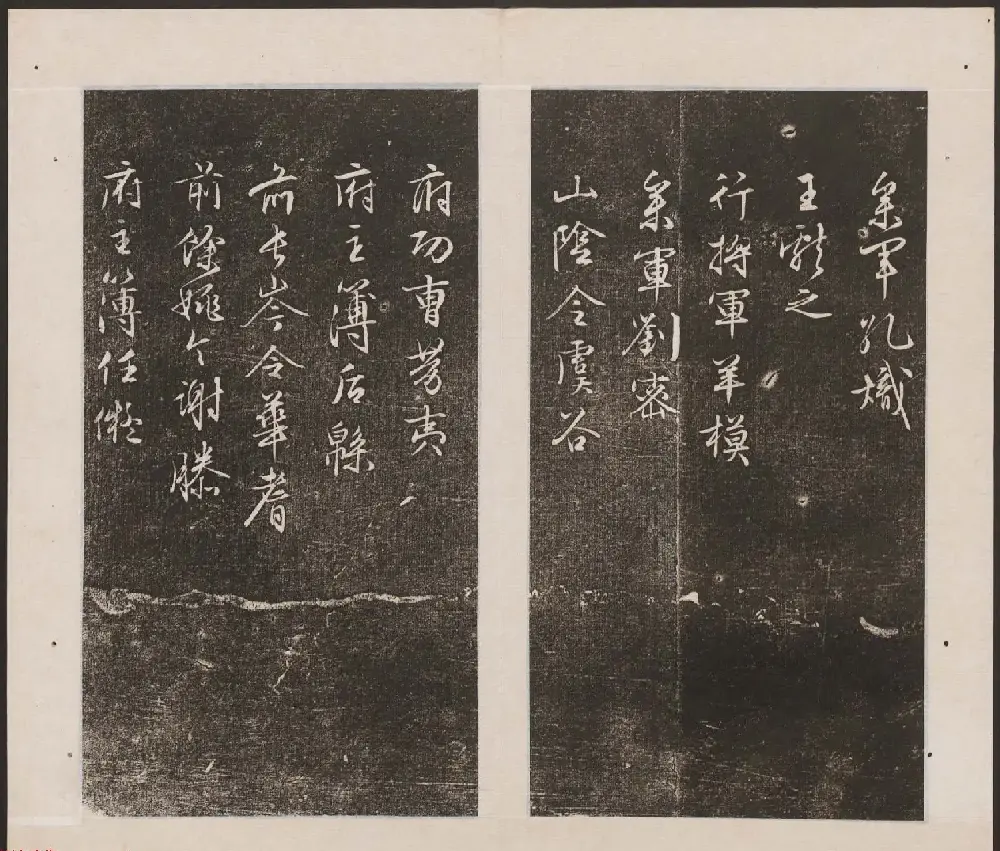 叅軍孔熾
王獻之
行叅軍羊模
叅軍劉密
山陰令虞谷
府功曹勞夷
府主簿后綿
前長岑令華耆
前餘姚令謝滕
府主簿任儗